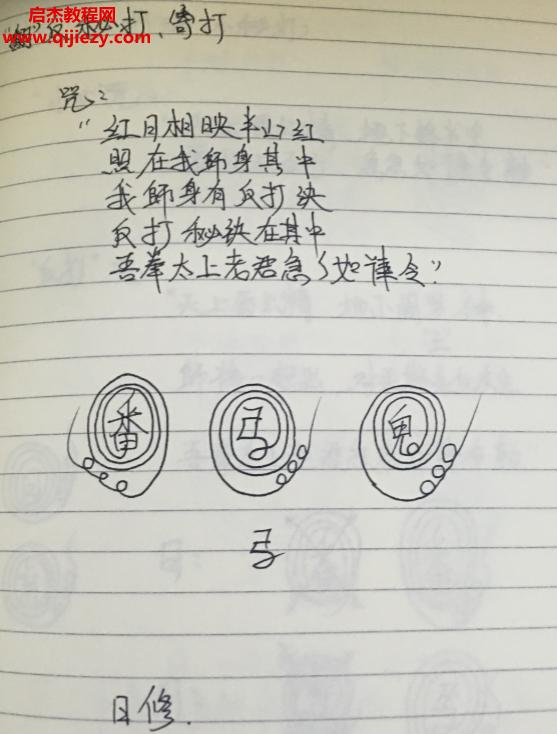 启杰教程网
www.qijiezy.com
反 打、寄打
咒：
“红日相映半山红
照在我師身其中
我師身有反打诀
反打秘诀在其中
吾奉太上老君急々如律令”
番 弓 鬼
弓
日修.